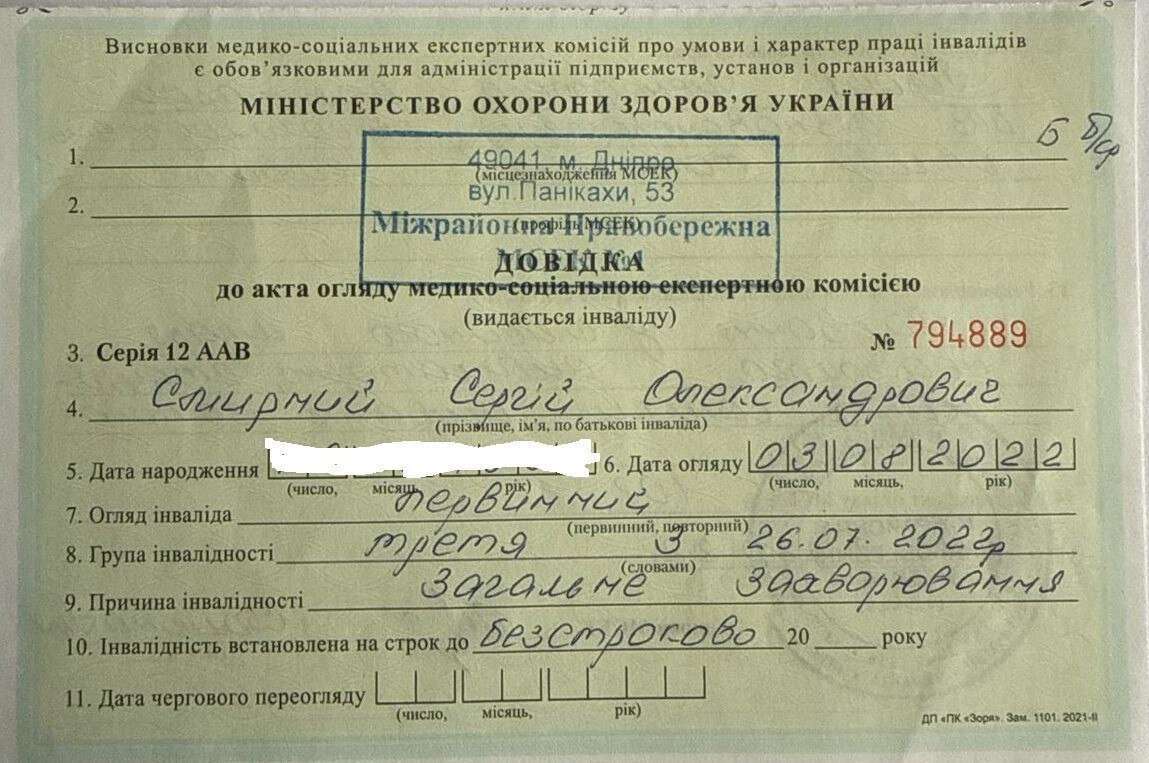 Висновки медико-соціальних експертних комісій про умови і характер праці інвалідів
є обов’язковими для адміністрації підприємств, установ і організацій
МІНІСТЕРСТВО ОХОРОНИ ЗДОРОВ’Я УКРАЇНИ
Б б/ср
1.
49041, м. Дніпро
(місцезнаходження МСЕК)
вул.Панікахи, 53
2.
(профіль МСЕК)
Міжрайонна Правобережна
ДОВІДКА
до акта огляду медико-соціальною експертною комісією
(видається інваліду)
3. Серія 12 ААВ № 794889
4. Смирний Сергій Олександрович
(прізвище, ім’я, по батькові інваліда)
5. Дата народження 6. Дата огляду 03 08 2022
(число, місяць, рік) (число, місяць, рік)
7. Огляд інваліда первинний
(первинний, повторний)
8. Група інвалідності третя 3 26.07.2022р
(словами)
9. Причина інвалідності Загальне Захворювання
10. Інвалідність встановлена на строк до безстроково 20 року
11. Дата чергового переогляду
(число, місяць, рік)
ДП «ПК «Зоря». Зам. 1101. 2021-ІІ